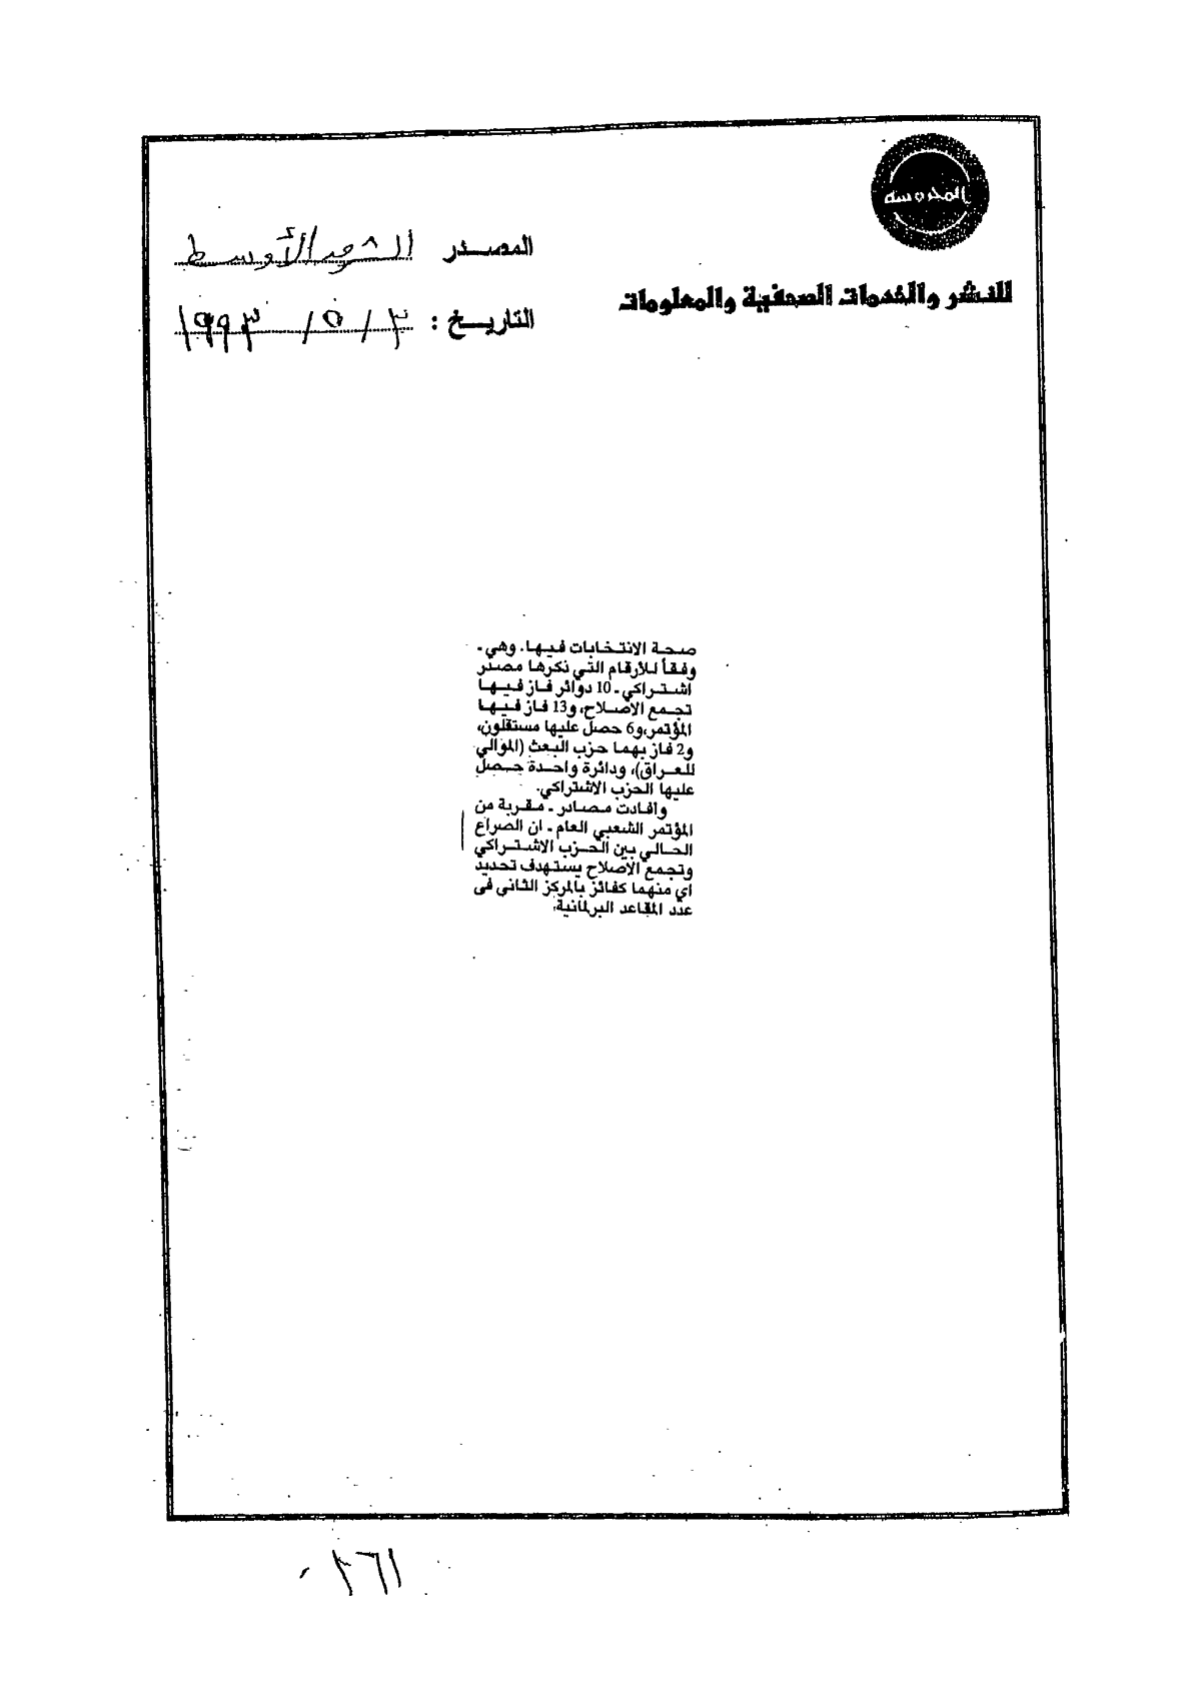 المحروسة
للنشر والخدمات الصحفية والمعلومات
المصدر الشرق الأوسط
التاريخ : ٣ / ٥ / ١٩٩٣
صحة الانتخابات فيها. وهي -
وفقاً للأرقام التي ذكرها مصدر
اشتراكي - 10 دوائر فاز فيها
تجمع الاصلاح، و13 فاز فيها
المؤتمر، و6 حصل عليها مستقلون،
و2 فاز بهما حزب البعث (الموالي
للعراق)، ودائرة واحدة حصل
عليها الحزب الاشتراكي.
وافادت مصادر - مقربة من
المؤتمر الشعبي العام - ان الصراع
الحالي بين الحزب الاشتراكي
وتجمع الاصلاح يستهدف تحديد
اي منهما كفائز بالمركز الثاني في
عدد المقاعد البرلمانية.